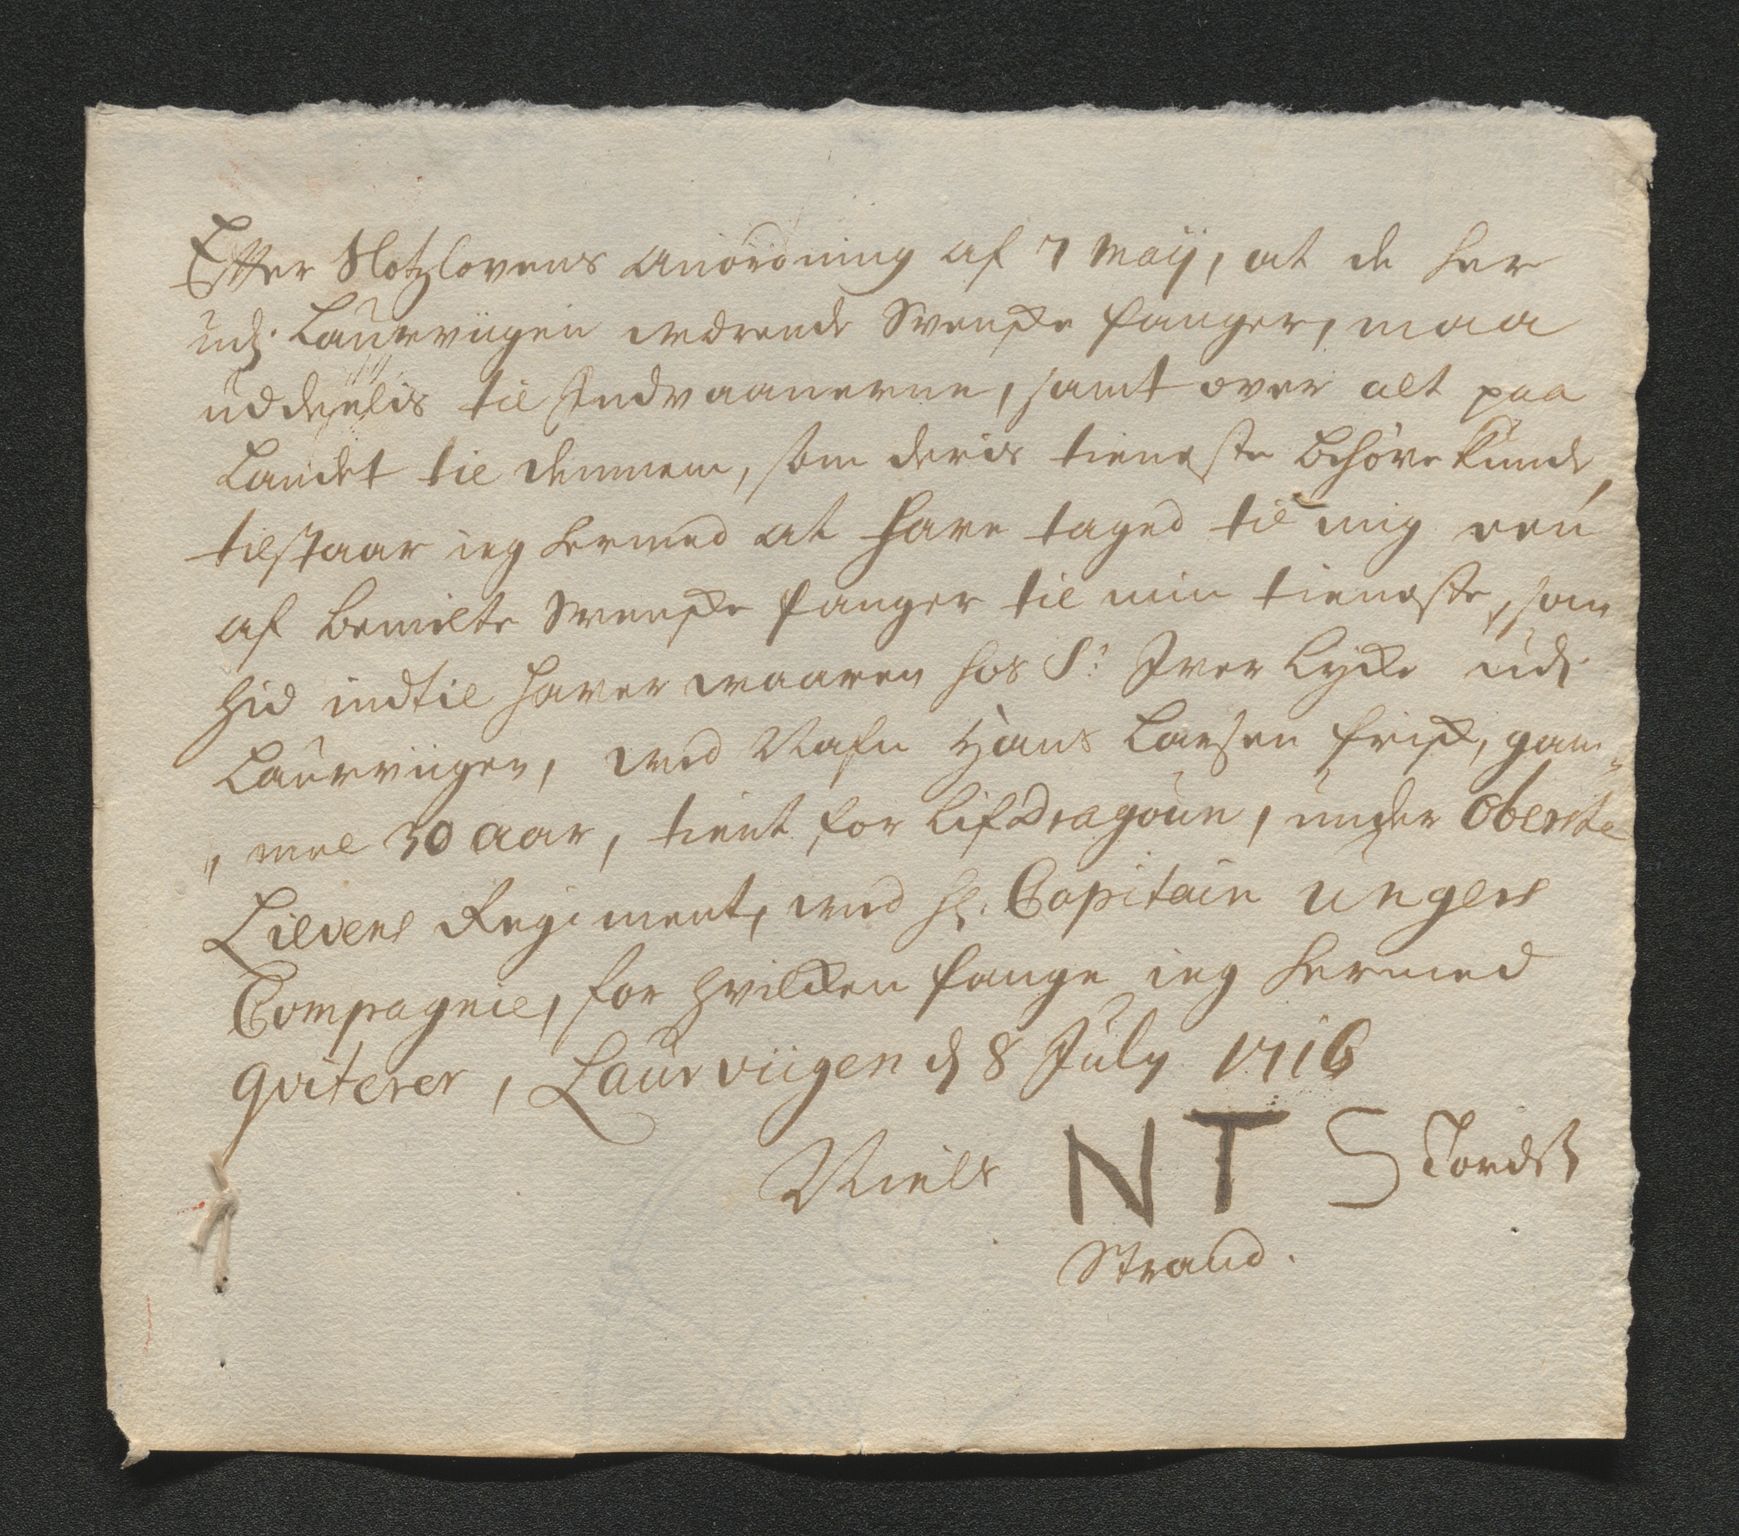 Efter Slotzlovens anordning af 7 Maij, at de her
udj Laurviigen værende Svenske fanger, maa
uddeelis til Indvaanerne, samt over alt paa
Landet til dennem, som deris tieneste behöve kunde,
tilstaar ieg hermed at have taged til mig een
af bemelte Svenske fanger til min tieneste, som
hid indtil haver vaaren hos Sr. Iver Lycke udj
Laurviigen, ved Nafn Hans Larsen frisk, gam„
„mel 30 aar, tient for LifDragoun, under Oberste
Lievens Regiment, ved hr. Capitain Ungers
Compagnie, for hvilcken fange ieg hermed
qviterer, Laurviigen d 8 July 1716
Niels NTS Tords:
Strand.